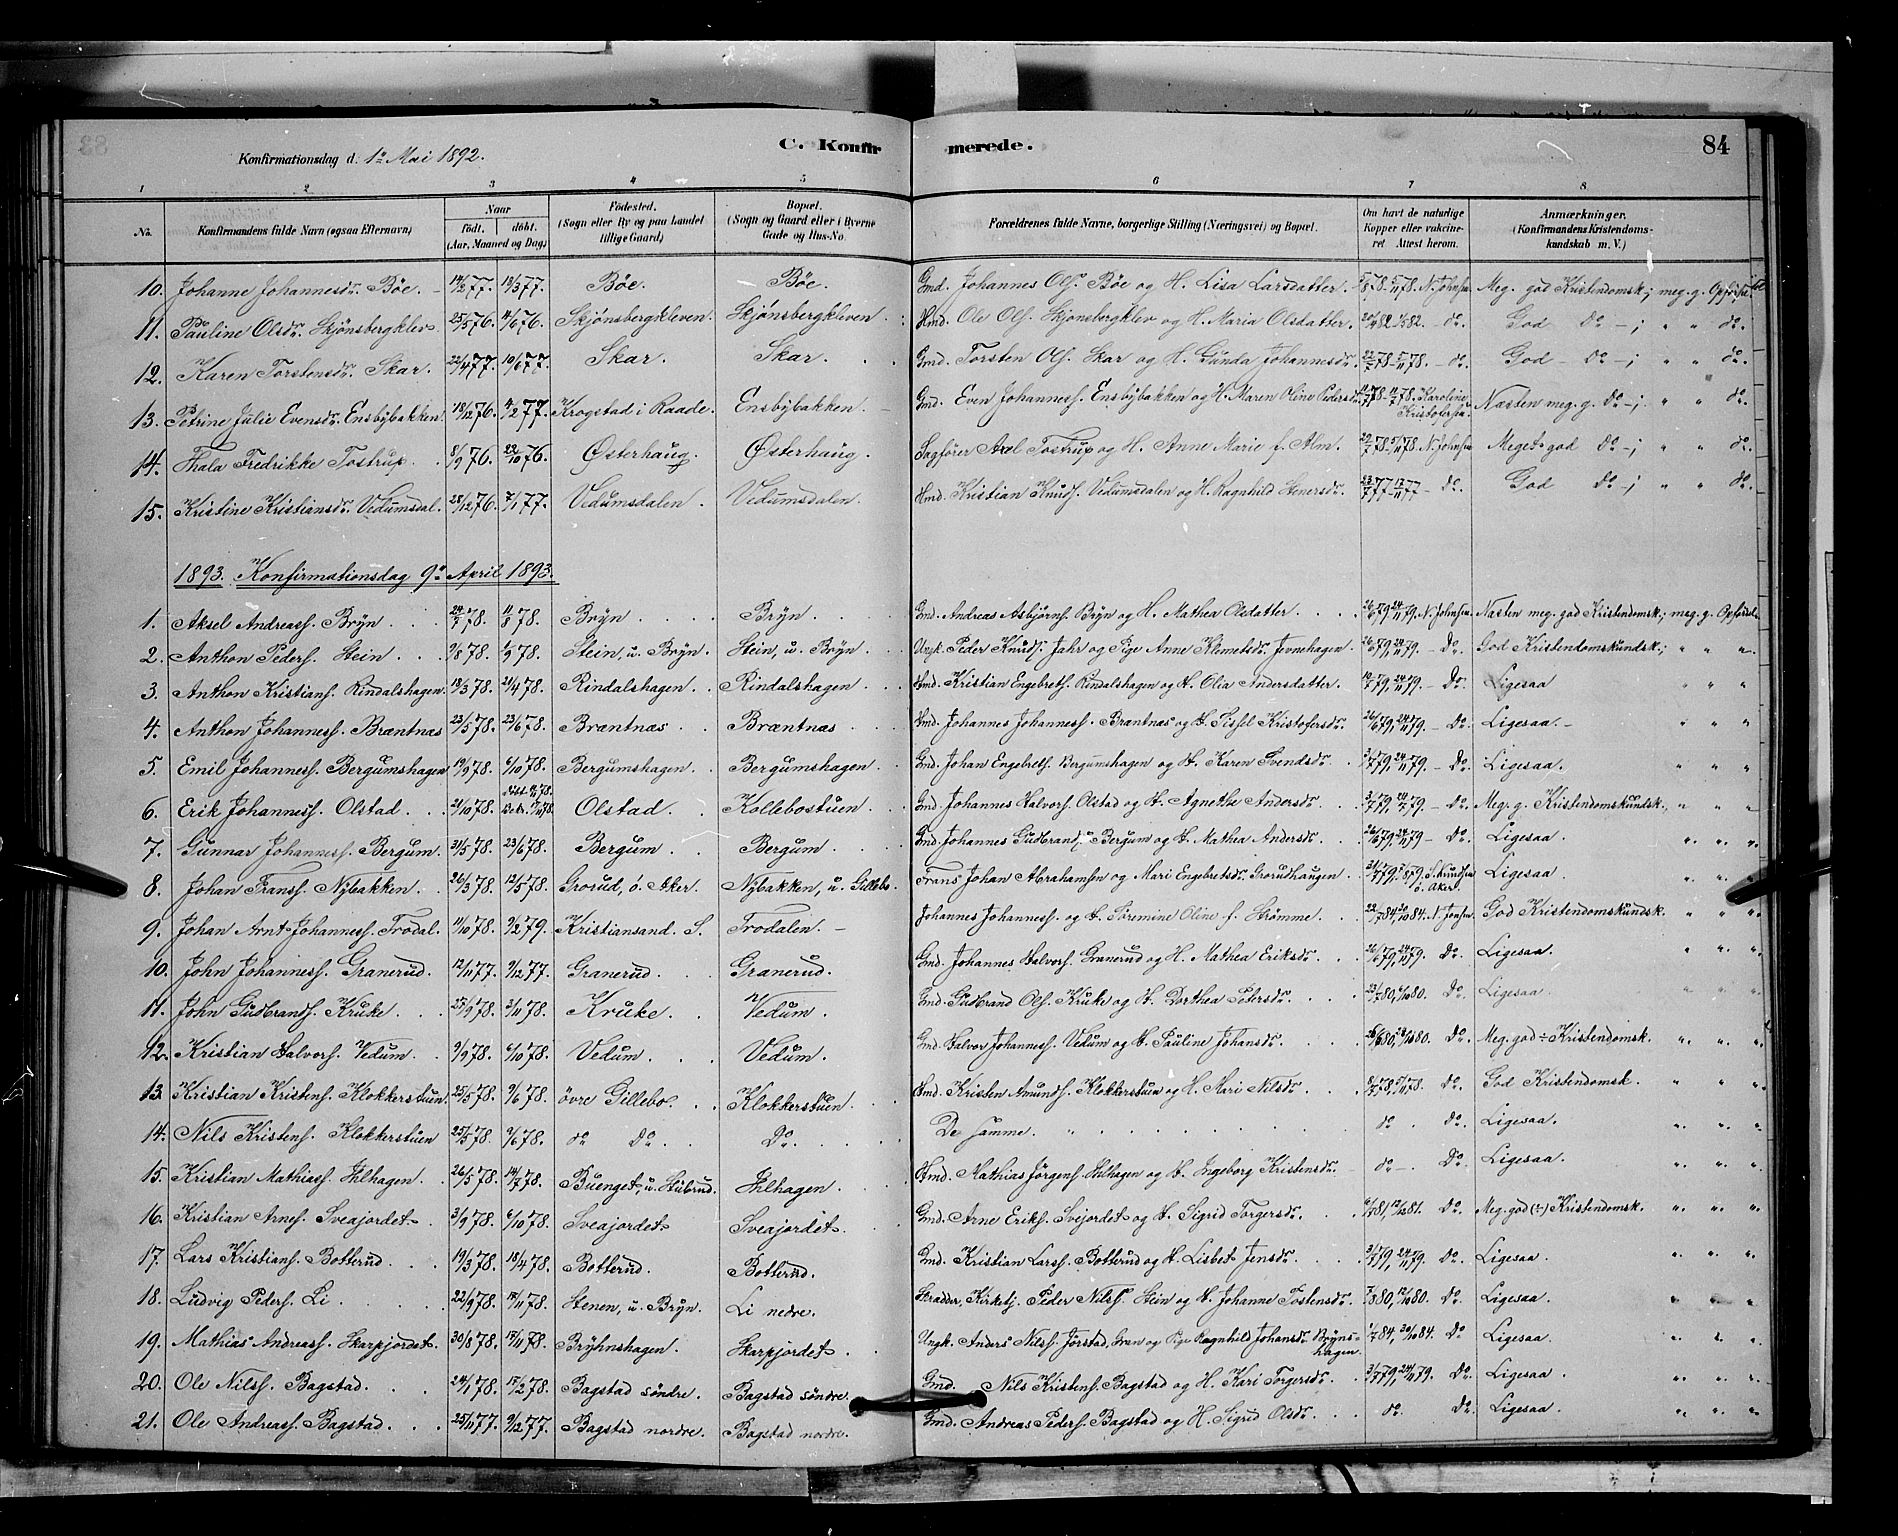 84
C. Konfirmerede.
Konfirmationsdag d. 1ᵒ Mai 1892.
1 2 3 4 5 6 7 8
No. Konfirmandens fulde Navn (ogsaa Efternavn) Naar født. døbt. (Aar, Maaned og Dag) Fødested. (Sogn eller By og paa Landet tillige Gaard) Bopæl. (Sogn og Gaard eller i Byerne Gade og Hus-No. Forældrenes fulde Navne, borgerlige Stilling (Næringsvei) og Bopæl. Om havt de naturlige Kopper eller vakcineret Attest herom. Anmærkninger. (Konfirmandens Kristendomskundskab m. V.)
10. Johanne Johannesdr. Böe. 14/2 77. 18/3 77. Böe. Böe. Gmd. Johannes Ols. Böe og H. Lisa Larsdatter. 5/8 78. 5/11 78. N. Johnsen Meg. god Kristendomsk.; meg. g. Opförsel
11. Pauline Olsdr. Skjönsbergklev. 25/5 76. 11/6 76. Skjönsbergkleven. Skjönsbergkleven. Hmd. Ole Ols. Skjönsbergklev og H. Maria Olsdatter. do. God Do -; " " do.
12. Karen Torstensdr. Skar. 22/4 77. 10/6 77. Skar. Skar. Gmd. Torsten Ols. Skar og H. Gunda Johannesdr. 5/11 78. - do. God - Do -; " " do.
13. Petrine Julie Evensdr. Ensbybakken. 18/12 76. 4/2 77. Krogstad i Raade. Ensbybakken. Gmd. Even Johanness. Ensbybakken og H. Maren Oline Pedersdr. Karoline Kristofersen. Næsten meg. g. Do -; " " do.
14. Thala Fredrikke Tostrup. 8/9 76. 22/10 76. Østerhaug. Østerhaug. Sagfører Axel Tostrup og H. Anne Marie f. Alm. 5/11 78. N. Johnsen Meget god do -; " " do.
15. Kristine Kristiansdr. Vedumsdal. 28/12 76. 7/1 77. Vedumsdalen. Vedumsdalen. Hmd. Kristian Knuds. Vedumsdalen og H. Ragnhild Stenersdr. - Do. God Do -; " " do.
1893. Konfirmationsdag 9ᵒ April 1893.
1. Aksel Andreass. Bryn. 24/7 78. 11/8 78. Bryn. Bryn. Gmd. Andreas Asbjörns. Bryn og H. Mathea Olsdatter. 26/6 79, 24/11 79. N. Johnsen Næsten meg. god Kristendomsk.; meg. g. Opförsel.
2. Anthon Peders. Stein. Stein, u. Bryn. Stein, u. Bryn. Ungk. Peder Knuds. Jahr og Pige Anne Klemetsdr. Jevnehagen. 26/6 79, 24/11 79. - Do. God Kristendomskundsk.; " " "
3. Anthon Kristians. Rindalshagen. 18/3 78. 21/4 78. Rindalshagen. Rindalshagen. Hmd. Kristian Engebrets. Rindalshagen og H. Olia Andersdatter. 24/11 79. - Do. Ligesaa " " "
4. Anthon Johanness. Bræntnæs 23/5 78. 23/6 78. Bræntnæs Bræntnæs Hmd. Johannes Johanness. Bræntnæs og H. Sissel Kristofersdr. 26/6 79, 24/11 79. - Do. Ligesaa. " " "
5. Emil Johanness. Bergumshagen 19/9 78. 6/10 78. Bergumshagen. Bergumshagen. Gmd. Johan Engebrets. Bergumshagen og H. Karen Svendsdr. 3/7 79, 24/11 79. - Do. Ligesaa. " " "
6. Erik Johanness. Olstad. 21/10 78. Olstad. Kollebostuen. Gmd. Johannes Halvors. Olstad og H. Agnethe Andersdr. - Do. Meg. g. Kristendomskundsk., " " "
7. Gunnar Johanness. Bergum. 31/5 78. 23/6 78. Bergum. Bergum. Gmd. Johannes Gudbrands. Bergum og H. Mathea Andersdr. 26/6 79, 24/11 79 - Do. Ligesaa. " " "
8. Johan Franss. Nybakken. 26/3 78. 12/5 78. Grorud, ö. Aker. Nybakken, u. Gillebo. Frans Johan Abrahamsen og Mari Engebretsdr. Grorudhaugen. S. Knudsen ö. Aker. Ligesaa. " " "
9. Johan Arnt Johanness. Trodal. 11/10 78. 9/2 79. Kristiansand. S. Trodalen. Johannes Johanness. og H. Severine Oline f. Strömme. N. Jonsen. God Kristendomskundsk. " " "
10. John Johanness. Granerud. 12/11 77. 9/12 77. Granerud. Granerud. Gmd. Johannes Halvors. Granerud og H. Mathea Eriksdr. 26/6 79, 24/11 79. Do. Ligesaa. " " "
11. John Gudbrands. Kruke. 25/9 78. 3/11 78. Kruke. Vedum. Gmd. Gudbrand Ols. Kruke og H. Dorthea Petersdr. Do. Ligesaa. " " "
12. Kristian Halvors. Vedum. 9/9 78. 6/10 78. Vedum. Vedum. Gmd. Halvor Johanness. Vedum og H. Pauline Johansdr. Do. Meg. god ÷ Kristendomsk. " " "
13. Kristian Kristens. Klokkerstuen. 25/5 78. 9/6 78. övre Gillebo. Klokkerstuen. Hmd. Kristen Amunds. Klokkerstuen og H. Mari Nilsdr. Do. God Kristendomsk. " " "
14. Nils Kristens. Klokkerstuen 25/5 78. 9/6 78. do Do. Do. De samme. " do Do. Ligesaa. " " "
15. Kristian Mathiass. Ihlhagen. 26/5 78. 14/7 78. Buenget, u. Stubrud. Ihlhagen. Hmd. Mathias Jörgens. Ihlhagen og H. Ingeborg Kristensdr. - do -. Do. Ligesaa. " " "
16. Kristian Arnes. Sveajordet. 3/9 78. 6/10 78. Sveajordet. Sveajordet. Gmd. Arne Eriks. Svejordet og H. Sigrid Torgersdr. Do. Meg. god (÷) Kristendomsk. " " "
17. Lars Kristians. Botterud. 19/3 78. 18/4 78. Botterud. Botterud. Gmd. Kristian Larss. Botterud og H. Lisbet Jensdr. 3/7 79, 24/11 79. Do. Ligesaa. " " "
18. Ludvig Peders. Li. 22/9 78. 17/11 78. Stenen, u. Bryn. Li nedre. Skrædder, Kirketj. Peder Nilss. Stein og H. Johanne Tostensdr. Do. Ligesaa. " " "
19. Mathias Andreass. Skarpjordet. 30/8 78. 17/11 78. Bryhnshagen. Skarpjordet. Ungk. Anders Nilss. Jorstad, Gran og Pige Ragnhild Johansdr. Brynshagen. Do. Ligesaa. " " "
20. Ole Nilss. Bagstad. 24/1 78. 17/2 78. Bagstad söndre. Bagstad söndre. Gmd. Nils Kristens. Bagstad og H. Kari Torgersdr. 3/7 79, 24/11 79. Do. Ligesaa. " " "
21. Ole Andreass. Bagstad. 25/11 77. 9/12 77. Bagstad nordre. Bagstad nordre. Gmd. Andreas Peders. Bagstad og H. Sigrid Olsdr. do. Do. Ligesaa. " " "